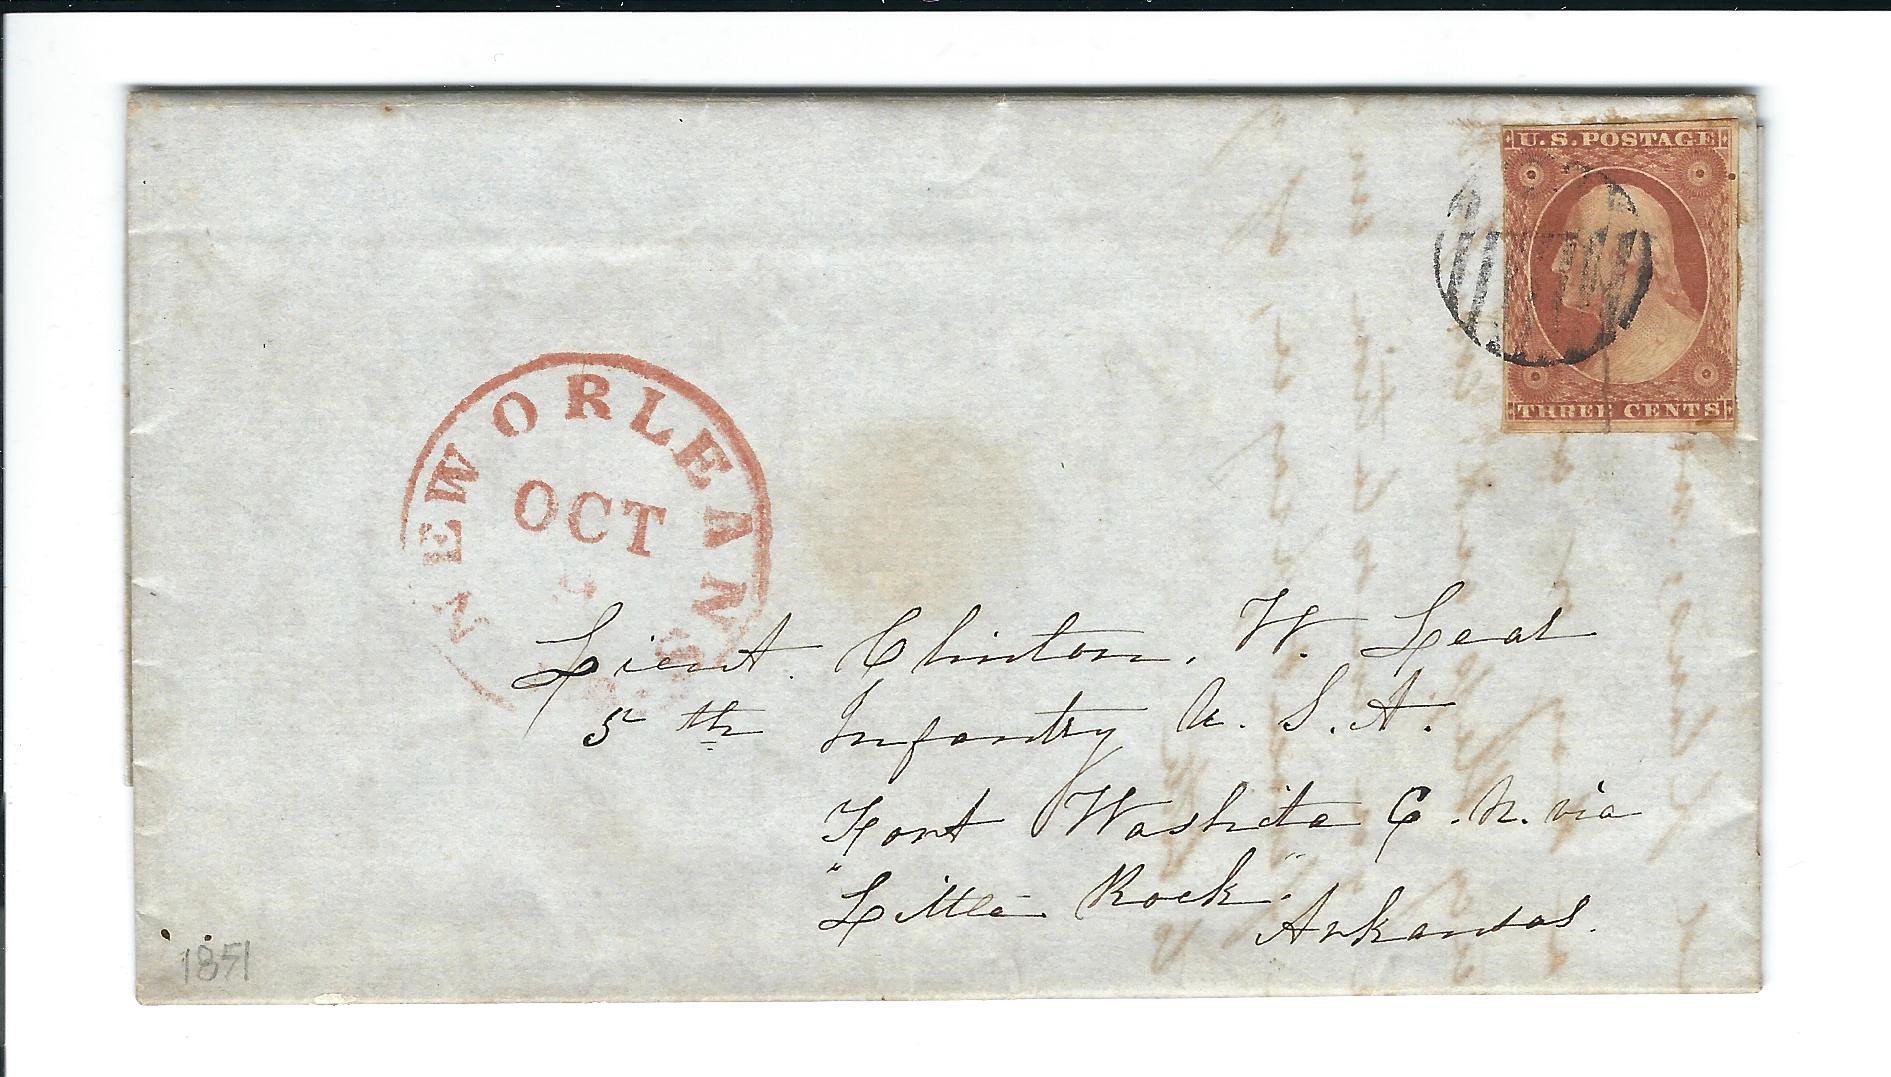 U.S. POSTAGE
THREE CENTS
NEW ORLEANS
OCT
Lieut. Clinton. W. Lear
5th Infantry U. S. A.
Fort Washita C. N. via
"Little Rock".
Arkansas.
1851